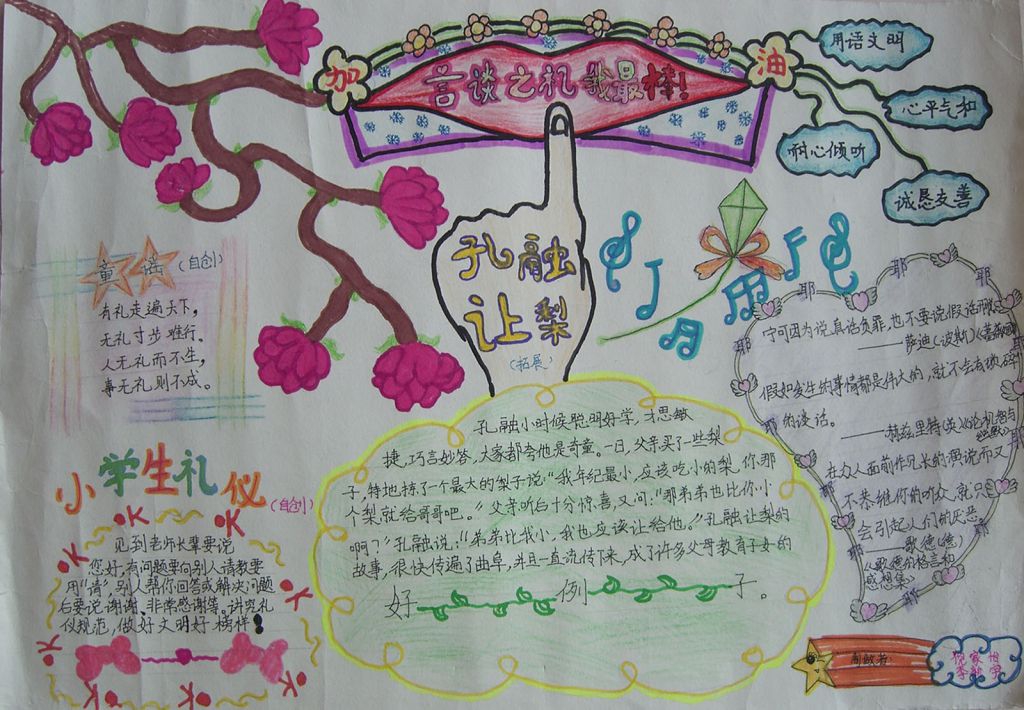 加
言谈之礼 我最棒!
油
用语文明
心平气和
耐心倾听
诚恳友善
童谣(自创)
有礼走遍天下,
无礼寸步难行。
人无礼而不生,
事无礼则不成。
孔融
让梨
(拓展)
孔融小时候聪明好学,才思敏
捷,巧言妙答,大家都夸他是奇童。一日,父亲买了一些梨
子,特地拣了个最大的梨子说“我年纪最小,应该吃小的梨,你那
个梨就给哥哥吧。”父亲听后十分惊喜,又问:“那弟弟也比你小
啊?”孔融说:“弟弟比我小,我也应该让给他。”孔融让梨的
故事,很快传遍了曲阜,并且一直流传下来,成了许多父母教育子女的
好例子。
小学生礼仪(自创)
见到老师长辈要说
您好,有问题要向别人请教要
用“请”,别人帮你回答或解决问题
后要说谢谢、非常感谢等。讲究礼
仪规范,做好文明好榜样!
耶
耶
耶
耶
耶
耶
耶
耶
宁可因为说真话负罪,也不要说假话
——萨迪(波斯)
假如发生的事情都是伟大的,就不会有
的谈话。
——赫兹里特(英)
在
不恭维你的听众,就只
会引起人们的厌恶
——歌德(德)
《歌德的格言和
感想集》